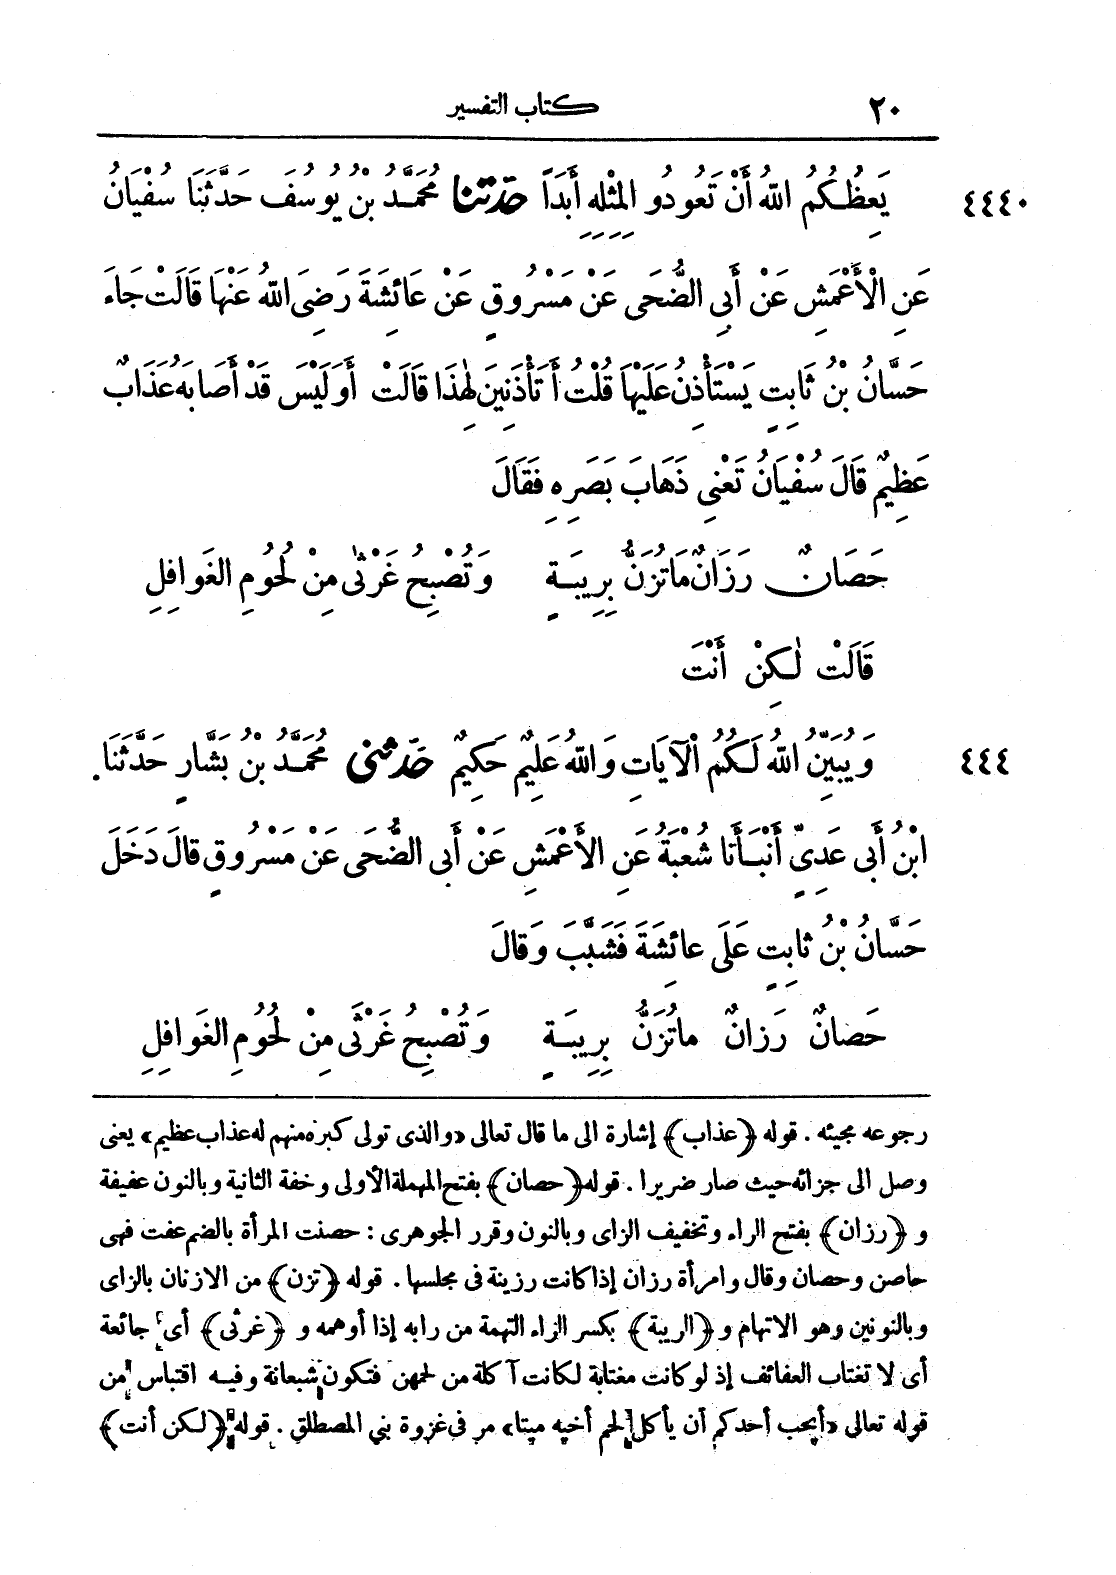 ٢٠ كتاب التفسير
٤٤٤٠ يَعِظُكُمُ اللهُ أَنْ تَعُودُو الِمِثْلِهِ أَبَدًا حَدَّثَنَا مُحَمَّدُ بْنُ يُوسُفَ حَدَّثَنَا سُفْيَانُ
عَنِ الْأَعْمَشِ عَنْ أَبِى الضُّحَى عَنْ مَسْرُوقٍ عَنْ عَائِشَةَ رَضِىَ اللهُ عَنْهَا قَالَتْ جَاءَ
حَسَّانُ بْنُ ثَابِتٍ يَسْتَأْذِنُ عَلَيْهَا قُلْتُ أَتَأْذَنِينَ لِهٰذَا قَالَتْ أَوَلَيْسَ قَدْ أَصَابَهُ عَذَابٌ
عَظِيمٌ قَالَ سُفْيَانُ تَعْنِى ذَهَابَ بَصَرِهِ فَقَالَ
حَصَانٌ رَزَانٌ مَا تُزَنُّ بِرِيبَةٍ وَتُصْبِحُ غَرْثٰى مِنْ لُحُومِ الغَوَافِلِ
قَالَتْ لٰكِنْ أَنْتَ
٤٤٤ وَيُبَيِّنُ اللهُ لَكُمُ الْآيَاتِ وَاللهُ عَلِيمٌ حَكِيمٌ حَدَّثَنِى مُحَمَّدُ بْنُ بَشَّارٍ حَدَّثَنَا
ابْنُ أَبِى عَدِىٍّ أَنْبَأَنَا شُعْبَةُ عَنِ الأَعْمَشِ عَنْ أَبِى الضُّحَى عَنْ مَسْرُوقٍ قَالَ دَخَلَ
حَسَّانُ بْنُ ثَابِتٍ عَلَى عَائِشَةَ فَشَبَّبَ وَقَالَ
حَصَانٌ رَزَانٌ مَاتُزَنُّ بِرِيبَةٍ وَتُصْبِحُ غَرْثَى مِنْ لُحُومِ الغَوَافِلِ
رجوعه مجيئه . قوله ﴿عذاب﴾ إشارة الى ما قال تعالى «والذى تولى كبره منهم له عذاب عظيم» يعنى
وصل الى جزائه حيث صار ضريرا . قوله ﴿حصان﴾ بفتح المهملة الأولى وخفة الثانية وبالنون عفيفة
و ﴿رزان﴾ بفتح الراء وتخفيف الزاى وبالنون وقرر الجوهرى : حصنت المرأة بالضم عفت فهى
حاصن وحصان وقال وامرأة رزان إذا كانت رزينة فى مجلسها . قوله ﴿تزن﴾ من الازنان بالزاى
وبالنونين وهو الاتهام و ﴿الريبة﴾ بكسر الراء التهمة من رابه إذا أوهمه و ﴿غرثى﴾ أى جائعة
أى لا تغتاب العفائف إذ لو كانت مغتابة لكانت آكلة من لحمهن فتكون شبعانة وفيه اقتباس من
قوله تعالى «أيحب أحدكم أن يأكل لحم أخيه ميتا» مر فى غزوة بني المصطلق . قوله ﴿لكن أنت﴾